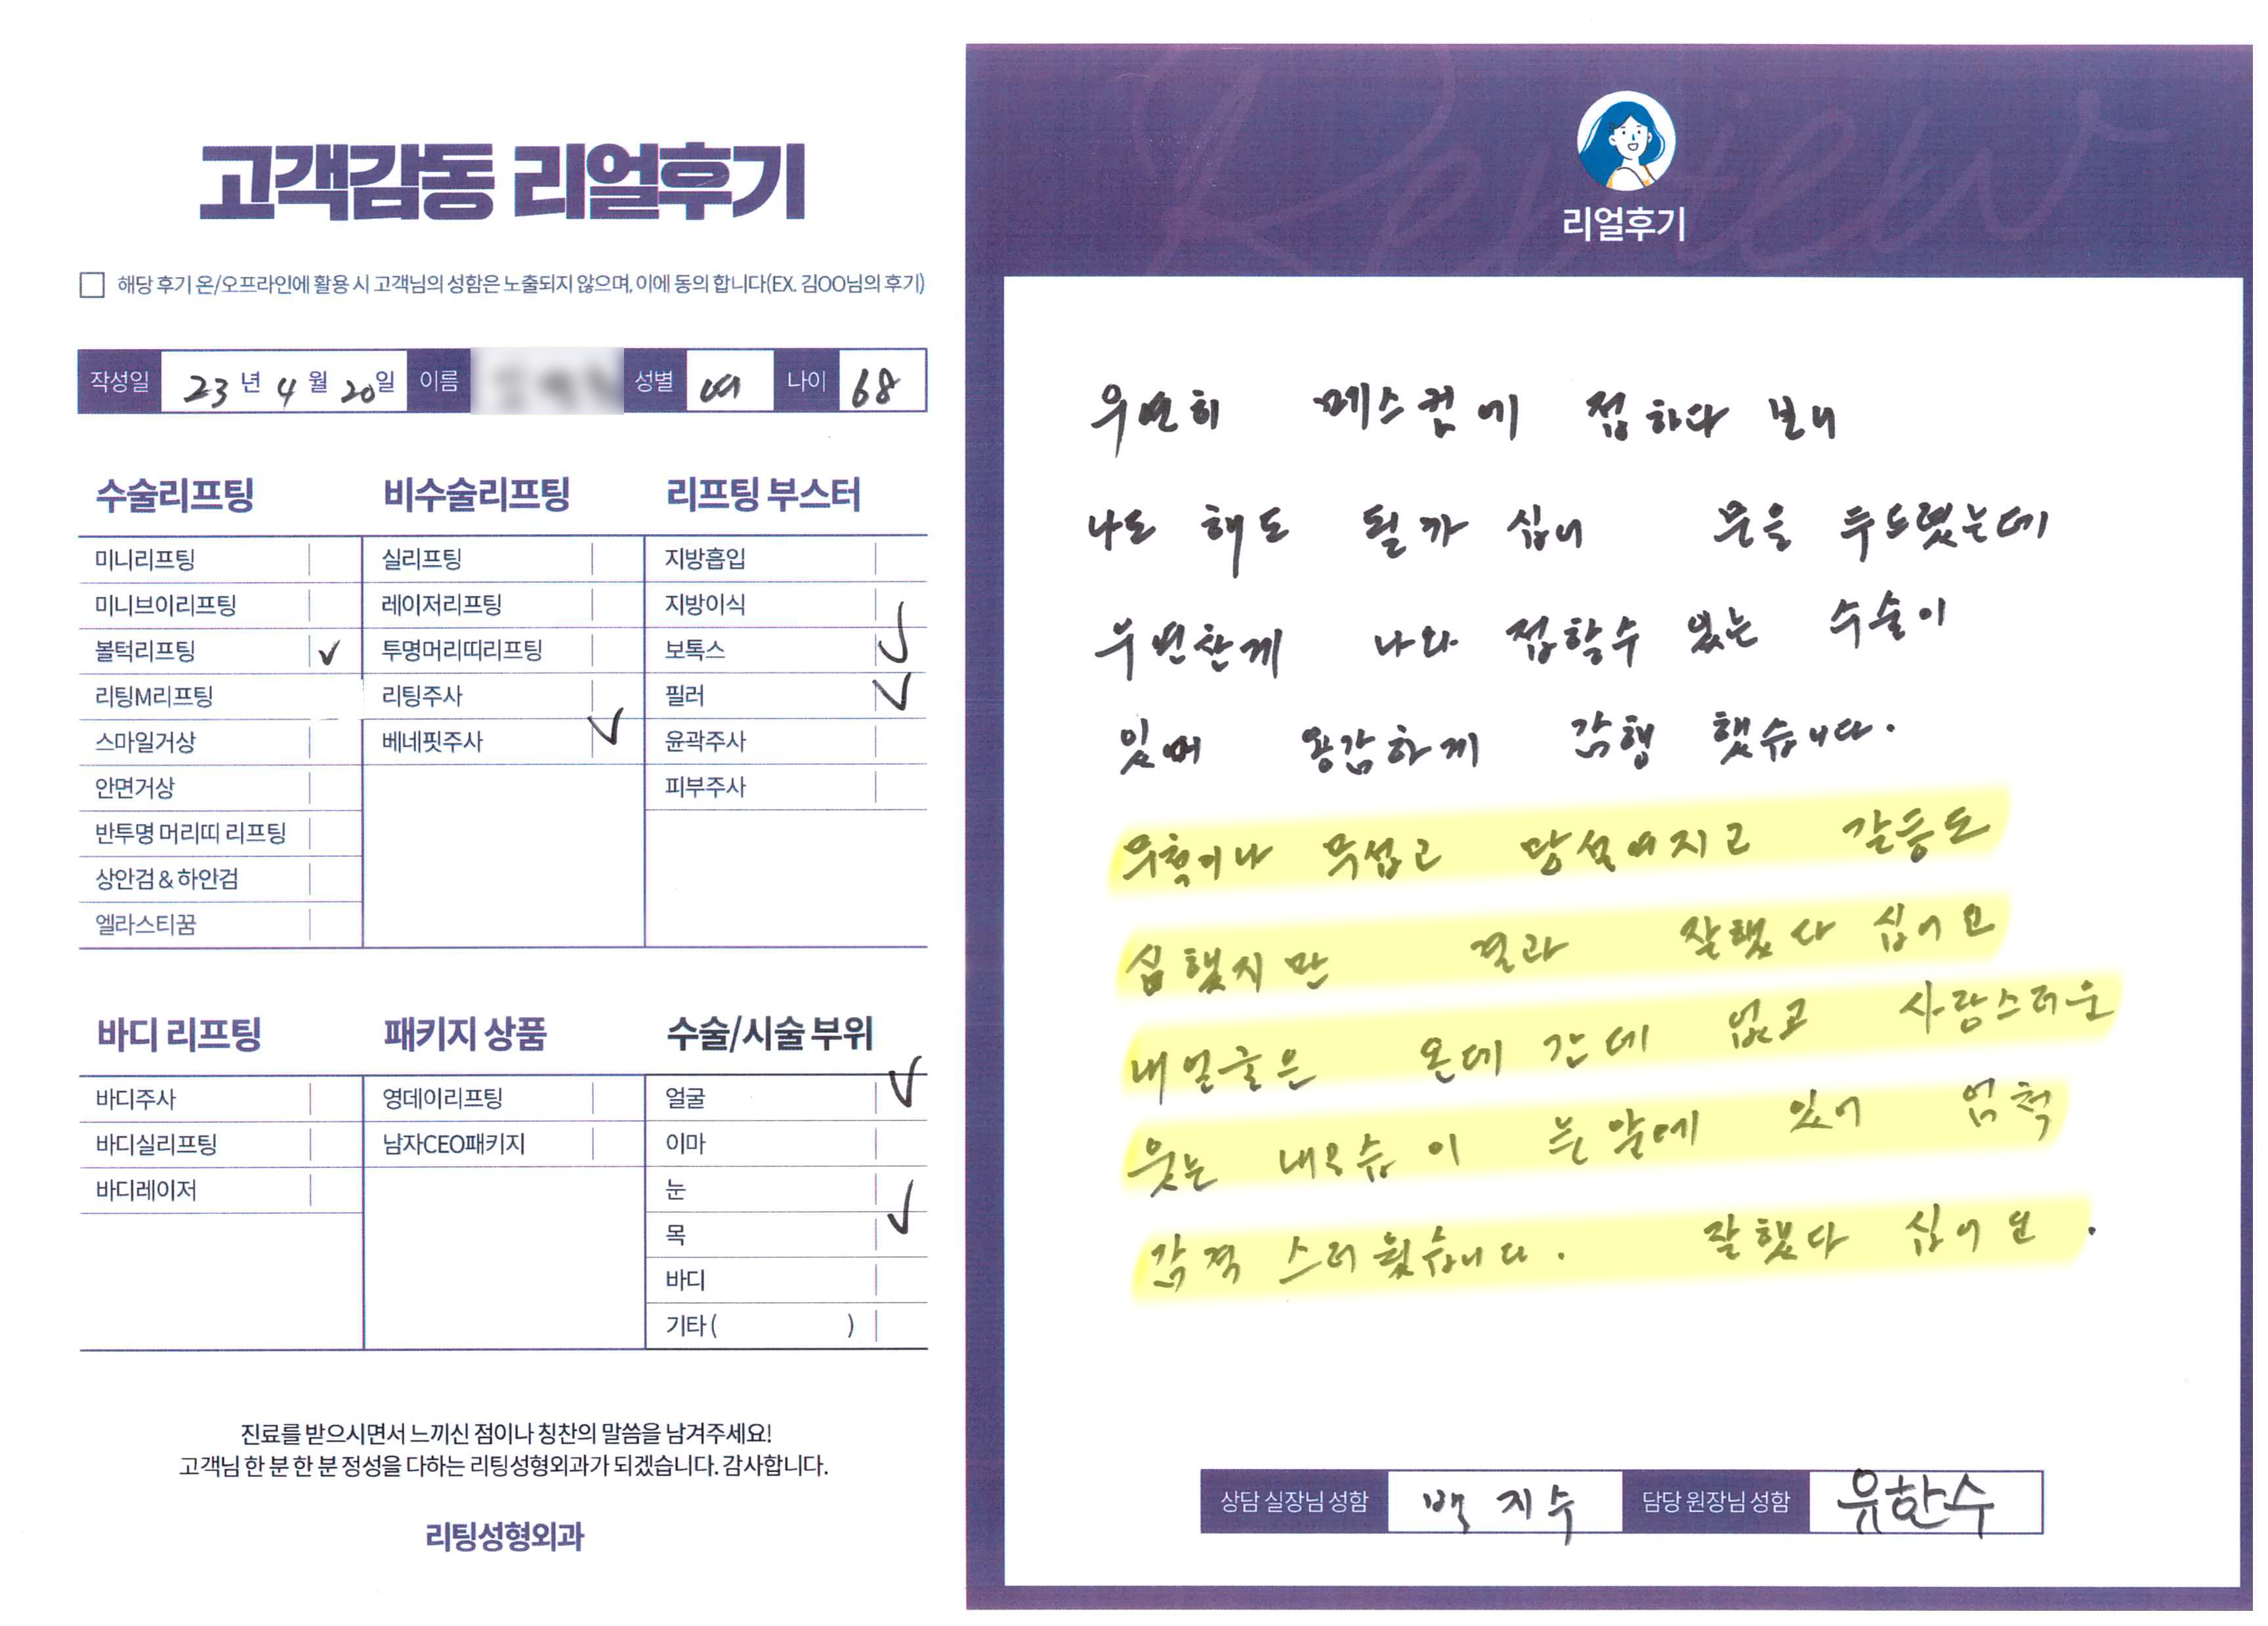 고객감동 리얼후기
해당 후기 온/오프라인에 활용 시 고객님의 성함은 노출되지 않으며, 이에 동의 합니다(EX. 김OO님의 후기)
작성일 23년 4월 20일 이름 성별 여 나이 68
수술리프팅
미니리프팅
미니브이리프팅
볼턱리프팅 ✓
리팅M리프팅
스마일거상
안면거상
반투명 머리띠 리프팅
상안검 & 하안검
엘라스티꿈
비수술리프팅
실리프팅
레이저리프팅
투명머리띠리프팅
리팅주사
베네핏주사 ✓
리프팅 부스터
지방흡입
지방이식
보톡스 ✓
필러 ✓
윤곽주사
피부주사
바디 리프팅
바디주사
바디실리프팅
바디레이저
패키지 상품
영데이리프팅
남자CEO패키지
수술/시술 부위
얼굴 ✓
이마
눈
목 ✓
바디
기타 ( )
진료를 받으시면서 느끼신 점이나 칭찬의 말씀을 남겨주세요!
고객님 한 분 한 분 정성을 다하는 리팅성형외과가 되겠습니다. 감사합니다.
리팅성형외과
Review
리얼후기
우연히 메스컴에 접하다 보니
나도 해도 될까 십어 문을 두드렸는데
우연찬게 나와 접할수 있는 수술이
있어 용감하게 감행 했습니다.
무척이나 무섭고 망설여지고 갈등도
심했지만 결과 잘했다 십어요
내얼굴은 온데 간데 없고 사랑스러운
웃는 내모습이 눈앞에 있어 엄척
감격 스러웠습니다. 잘했다 십어요.
상담 실장님 성함 박지수 담당 원장님 성함 유한수